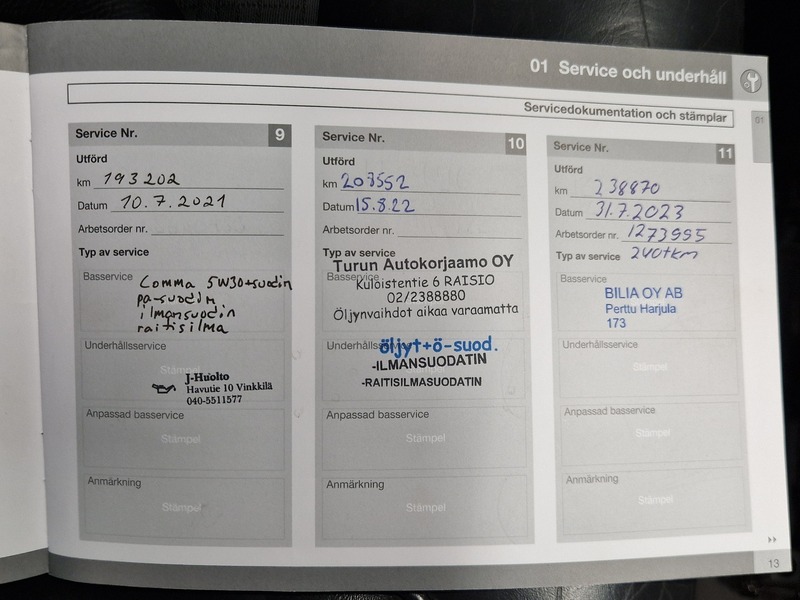 01 Service och underhåll
Servicedokumentation och stämplar
01
Service Nr. 9
Utförd
km 193202
Datum 10.7.2021
Arbetsorder nr.
Typ av service
Basservice
Comma 5W30+suodin
pa-suodin
ilmansuodin
raitisilma
Underhållsservice
Stämpel
J-Huolto
Havutie 10 Vinkkilä
040-5511577
Anpassad basservice
Stämpel
Anmärkning
Stämpel
Service Nr. 10
Utförd
km 208552
Datum 15.8.22
Arbetsorder nr.
Typ av service
Turun Autokorjaamo OY
Basservice
Kuloistentie 6 RAISIO
02/2388880
Öljynvaihdot aikaa varaamatta
Underhållsservice
öljyt+ö-suod.
-ILMANSUODATIN
-RAITISILMASUODATIN
Anpassad basservice
Stämpel
Anmärkning
Stämpel
Service Nr. 11
Utförd
km 238870
Datum 31.7.2023
Arbetsorder nr. 1273995
Typ av service 240tkm
Basservice
BILIA OY AB
Perttu Harjula
173
Underhållsservice
Stämpel
Anpassad basservice
Stämpel
Anmärkning
Stämpel
13